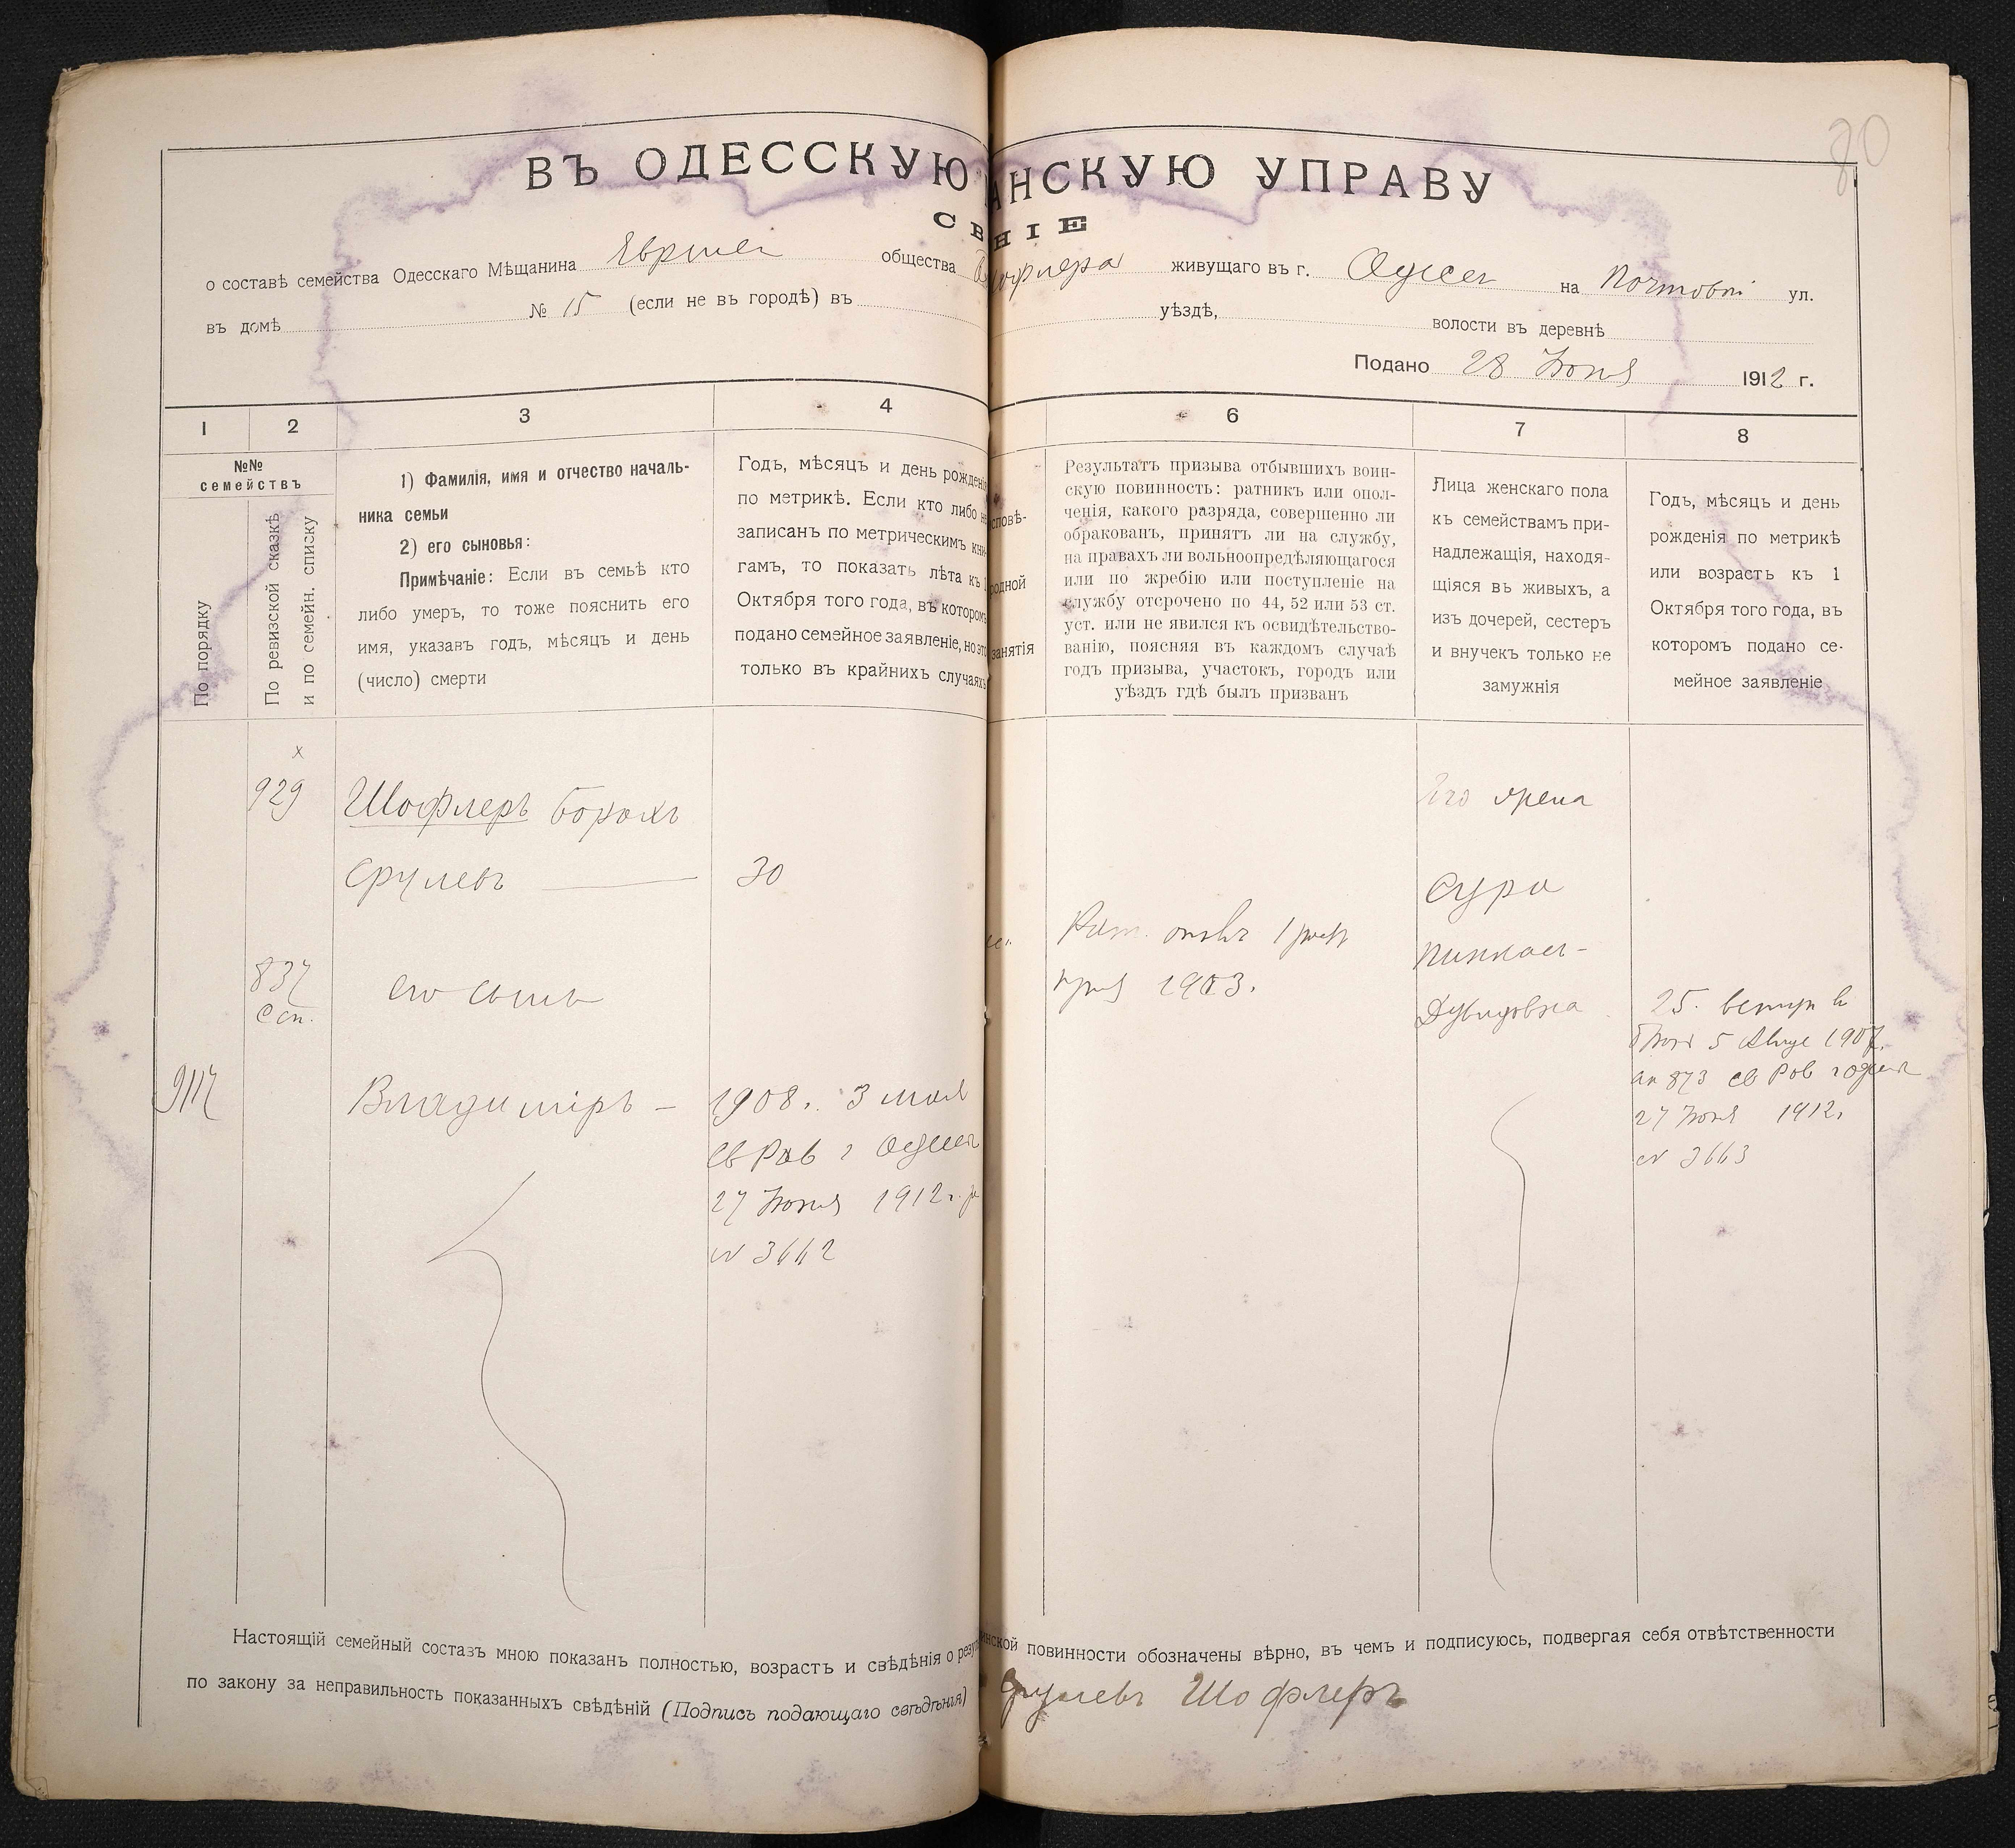 80
ВЪ ОДЕССКУЮ АНСКУЮ УПРАВУ
СВ НІЕ
о составѣ семейства Одесскаго Мѣщанина общества живущаго въ г. Одессѣ на Почтовой ул.
въ домѣ № 15 (если не въ городѣ) въ уѣздѣ, волости въ деревнѣ
Подано 28 Іюня 1912 г.
1 2 3 4 6 7 8
№№
семействъ
По порядку
По ревизской сказкѣ
и по семейн. списку
1) Фамилія, имя и отчество началь-
ника семьи
2) его сыновья:
Примѣчаніе: Если въ семьѣ кто
либо умеръ, то тоже пояснить его
имя, указавъ годъ, мѣсяцъ и день
(число) смерти
Годъ, мѣсяцъ и день рожденія
по метрикѣ. Если кто либо не
записанъ по метрическимъ кни-
гамъ, то показать лѣта къ 1
Октября того года, въ которомъ
подано семейное заявленіе, но это
только въ крайнихъ случаяхъ
сповѣ-
родной
занятія
Результатъ призыва отбывшихъ воин-
скую повинность: ратникъ или опол-
ченія, какого разряда, совершенно ли
обракованъ, принятъ ли на службу,
на правахъ ли вольноопредѣляющагося
или по жребію или поступленіе на
службу отсрочено по 44, 52 или 53 ст.
уст. или не явился къ освидѣтельство-
ванію, поясняя въ каждомъ случаѣ
годъ призыва, участокъ, городъ или
уѣздъ гдѣ былъ призванъ
Лица женскаго пола
къ семействамъ при-
надлежащія, находя-
щіяся въ живыхъ, а
изъ дочерей, сестеръ
и внучекъ только не
замужнія
Годъ, мѣсяцъ и день
рожденія по метрикѣ
или возрастъ къ 1
Октября того года, въ
которомъ подано се-
мейное заявленіе
х
929 Шофлеръ Борохъ
Срулевъ — 30
837
Ссп.
его сынъ
9117 Владиміръ — 1908 г. 3 мая
св Рав г Одессы
27 Іюня 1912 г.
№ 3662
Рат. 1
1903.
Его жена
Сура
Пинхас-
Дувидовна
25.
5 1907.
873 св Рав г Одессы
27 Іюня 1912 г.
№ 3663
Настоящій семейный составъ мною показанъ полностью, возрастъ и свѣдѣнія о резу инской повинности обозначены вѣрно, въ чемъ и подписуюсь, подвергая себя отвѣтственности
по закону за неправильность показанныхъ свѣдѣній (Подпись подающаго свѣдѣнія) Срулевъ Шофлеръ